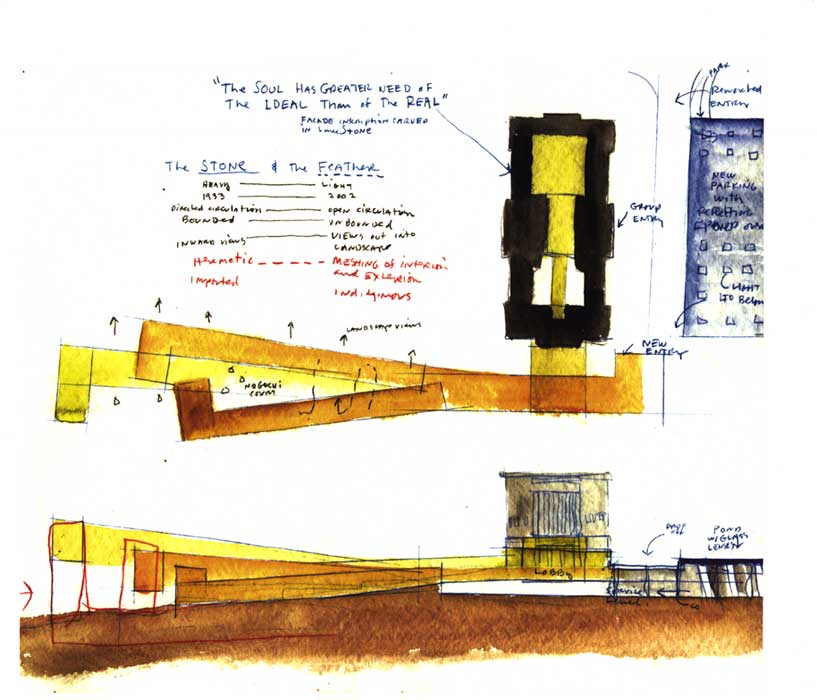 "The SOUL HAS GREATER NEED OF
The IDEAL Than of The REAL"
FACADE INSCRIPTION CARVED
IN LIMESTONE
The STONE & The FEATHER
HEAVY LIGHT
1933 2002
Directed circulation open circulation
BOUNDED UNBOUNDED
INWARD VIEWS VIEWS OUT INTO
LANDSCAPE
Hermetic MESHING OF INTERIOR
and EXTERIOR
Imported
PARK
ENTRY
NEW
PARKING
WITH
POND
LIGHT
TO Below
GROUP
ENTRY
NEW
ENTRY
LANDSCAPE VIEWS
NOGUCHI
COURT
LOBBY
DROP
OFF
POND
W/GLASS
LENSES
SERVICE